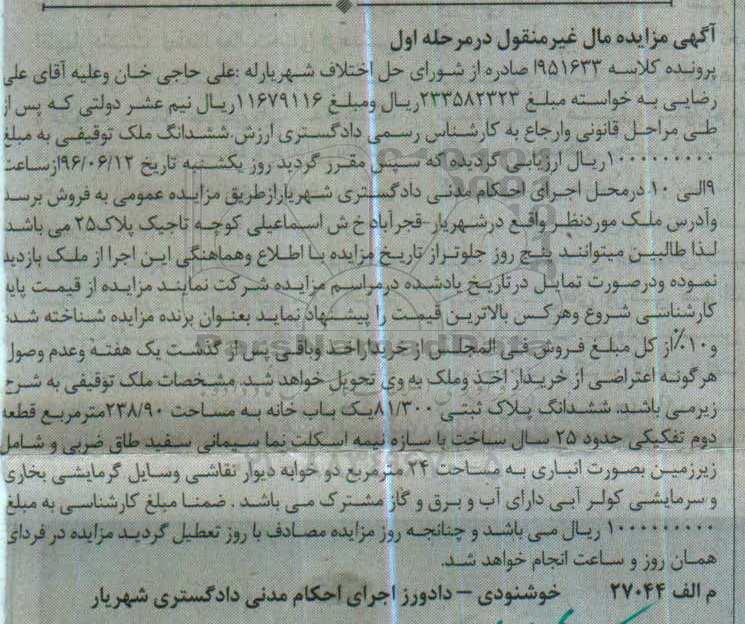 آگهی مزایده مال غیرمنقول درمرحله اول
پرونده کلاسه ۹۵۱۶۳۳ا صادره از شورای حل اختلاف شهریارله :علی حاجی خان وعلیه آقای علی
رضایی به خواسته مبلغ ۲۳۳۵۸۲۳۲۳ریال ومبلغ ۱۱۶۷۹۱۱۶ریال نیم عشر دولتی که پس از
طی مراحل قانونی وارجاع به کارشناس رسمی دادگستری ارزش ششدانگ ملک توقیفی به مبلغ
۱۰۰۰۰۰۰۰۰۰ریال ارزیابی گردیده که سپس مقرر گردید روز یکشنبه تاریخ ۹۶/۰۶/۱۲ازساعت
۹الی ۱۰ درمحل اجرای احکام مدنی دادگستری شهریارازطریق مزایده عمومی به فروش برسد
وآدرس ملک موردنظر واقع درشهریار -قجرآباد خ ش اسماعیلی کوچه تاجیک پلاک۲۵ می باشد
لذا طالبین میتوانند پنج روز جلوتراز تاریخ مزایده با اطلاع وهماهنگی این اجرا از ملک بازدید
نموده ودرصورت تمایل درتاریخ یادشده درمراسم مزایده شرکت نمایند مزایده از قیمت پایه
کارشناسی شروع وهرکس بالاترین قیمت را پیشنهاد نماید بعنوان برنده مزایده شناخته شده
و۱۰٪از کل مبلغ فروش فی المجلس از خریداراخذ وباقی پس از گذشت یک هفته وعدم وصول
هرگونه اعتراضی از خریدار اخذ وملک به وی تحویل خواهد شد. مشخصات ملک توقیفی به شرح
زیرمی باشد. ششدانگ پلاک ثبتی ۸۱/۳۰۰یک باب خانه به مساحت ۲۳۸/۹۰مترمربع قطعه
دوم تفکیکی حدود ۲۵ سال ساخت با سازه نیمه اسکلت نما سیمانی سفید طاق ضربی و شامل
زیرزمین بصورت انباری به مساحت ۲۴ مترمربع دو خوابه دیوار نقاشی وسایل گرمایشی بخاری
و سرمایشی کولر آبی دارای آب و برق و گاز مشترک می باشد . ضمنا مبلغ کارشناسی به مبلغ
۱۰۰۰۰۰۰۰۰۰ ریال می باشد و چنانچه روز مزایده مصادف با روز تعطیل گردید مزایده در فردای
همان روز و ساعت انجام خواهد شد.
م الف ۲۷۰۴۴ خوشنودی – دادورز اجرای احکام مدنی دادگستری شهریار
ParsNamadData